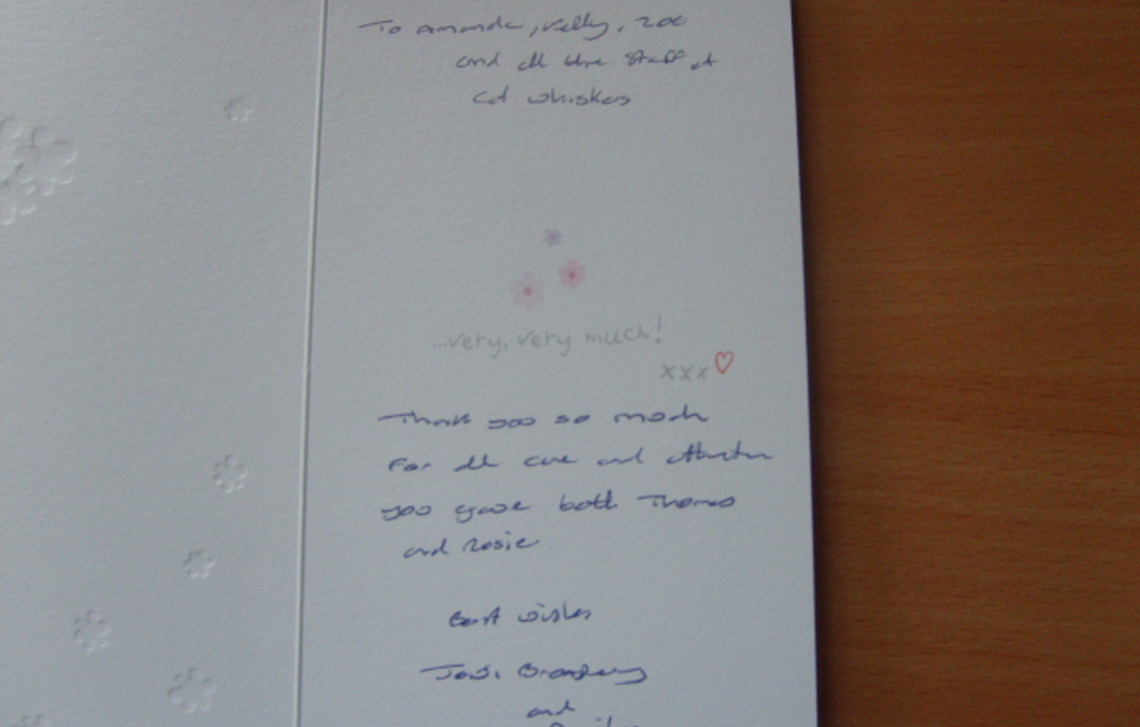 To Amanda, Kelly, Zoe
and all the staff at
Cat whiskers
...very, very much!
xxx
Thank you so much
For all care and attention
you gave both Thomas
and Rosie
Best wishes
and